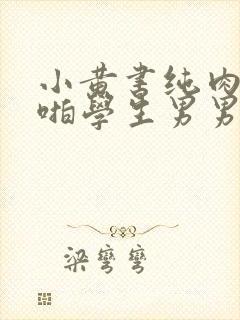 小黄书纯肉
啪學生男男
梁彎彎